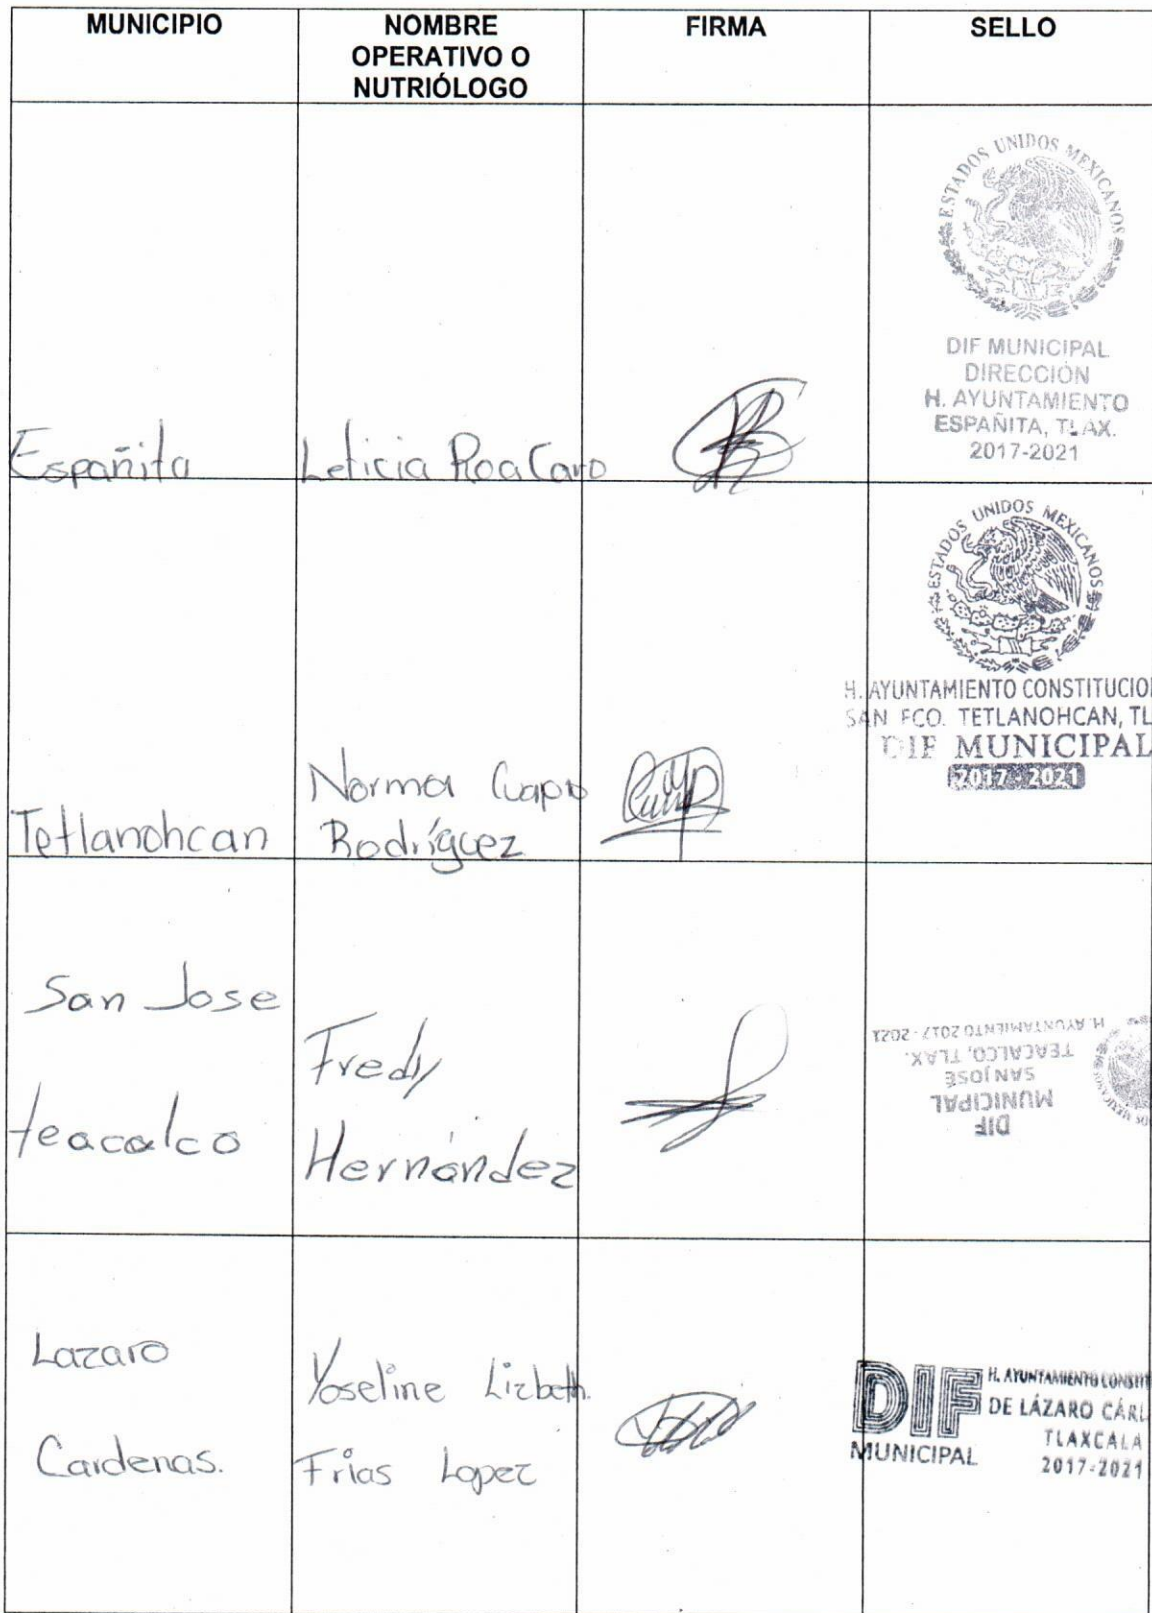 MUNICIPIO
NOMBRE
OPERATIVO O
NUTRIÓLOGO
FIRMA
SELLO
Españita
Leticia Roa Caro
ESTADOS UNIDOS MEXICANOS
DIF MUNICIPAL
DIRECCIÓN
H. AYUNTAMIENTO
ESPAÑITA, TLAX.
2017-2021
Tetlanohcan
Norma Cuapio
Rodríguez
ESTADOS UNIDOS MEXICANOS
H. AYUNTAMIENTO CONSTITUCIO
SAN FCO. TETLANOHCAN, TL
DIF MUNICIPAL
2017-2021
San Jose
teacalco
Fredy
Hernández
DIF
MUNICIPAL
SAN JOSÉ
TEACALCO, TLAX.
H. AYUNTAMIENTO 2017-2021
Lazaro
Cardenas.
Yoseline Lizbeth.
Frias Lopez
DIF
MUNICIPAL
H. AYUNTAMIENTO CONSTIT
DE LÁZARO CÁR
TLAXCALA
2017-2021